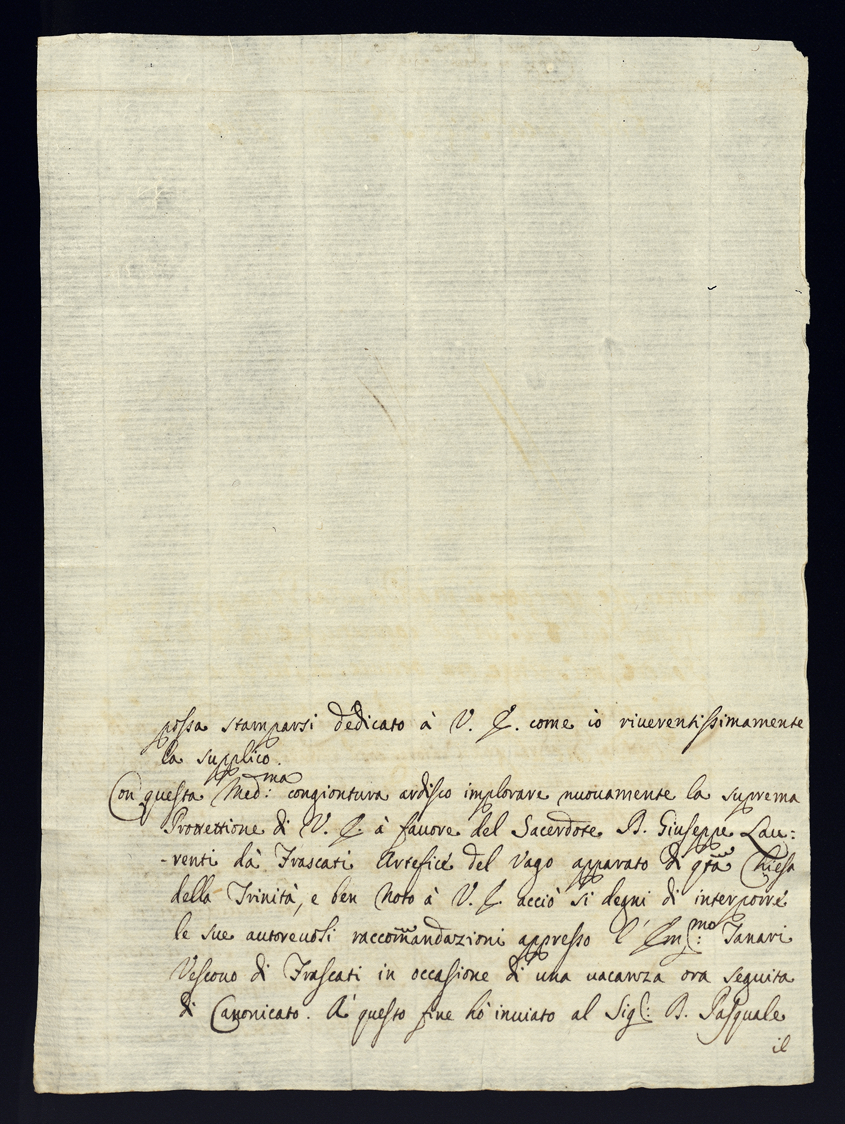 possa stamparsi dedicato à V. E. come io riuerentissimamente
la supplico.
Con questa Med:ma congiontura ardisco implorare nuouamente la suprema
Protettione di V. E. à fauore del Sacerdote D. Giuseppe Lau:
-renti dà Frascati Artefice del vago apparato di qta Chiesa
della Trinità, e ben noto à V. E. acciò si degni di interporre
le sue autoreuoli raccomandazioni appresso l' Em:mo Tanari
Vescouo di Frascati in occasione di una uacanza ora seguita
di Canonicato. A' questo fine hò inuiato al Sig: D. Pasquale
il